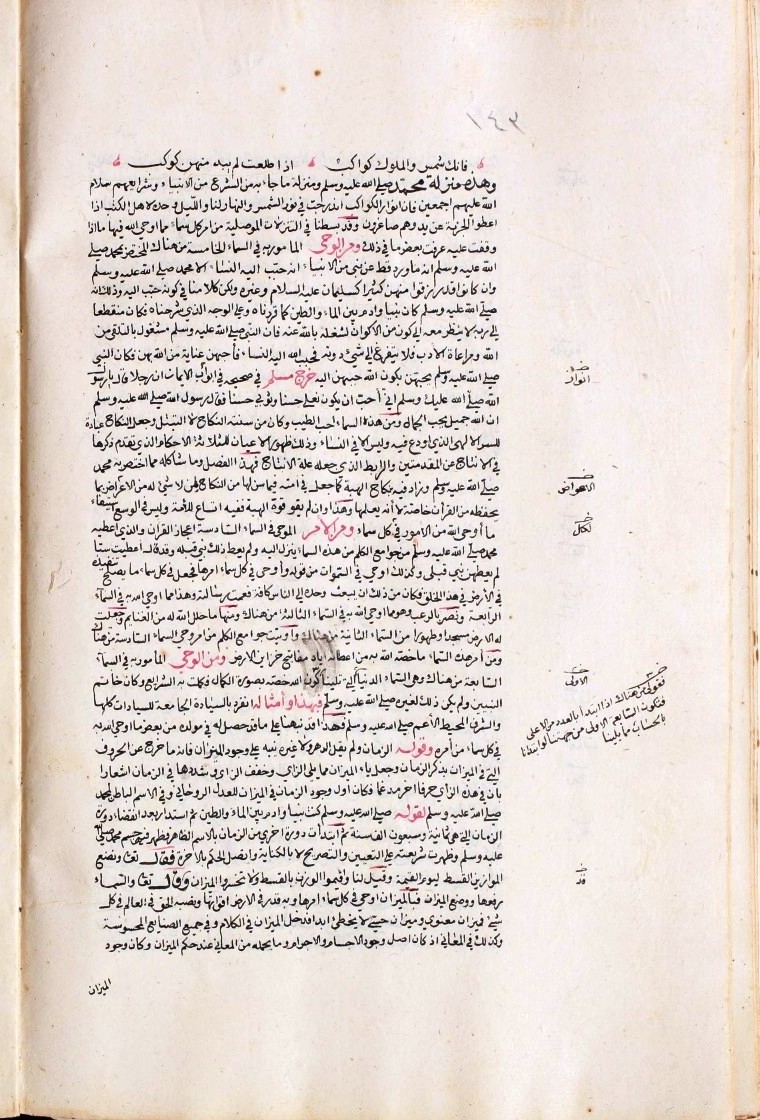 ١٤٣
فانك شمس والملوك كواكب اذا طلعت لم يبد منهن كوكب
وهذه منزلة محمد صلى الله عليه وسلم ومنزلة ما جاء به من الشرع من الانبياء وشرائعهم سلام
الله عليهم اجمعين فان انوار الكواكب اندرجت في نور الشمس والنهار لنا والليل وحده لاهل الكتب اذا
اعطوا الجزية عن يد وهم صاغرون وقد بسطنا في التنزلات الموصلية من امر كل سماء مما اوحى الله فيها ما اذا
وقفت عليه عرفت بعض ما في ذلك ومن الوحي المامور به في السماء الخامسة من هناك المختص بمحمد صلى
الله عليه وسلم انه ما ورد قط عن نبي من الانبياء انه حبب اليه النساء الا محمد صلى الله عليه وسلم
وان كانوا قد رزقوا منهن كثيرا كسليمان عليه السلام وغيره ولكن كلامنا في كونه حبب اليه وذلك انه
صلى الله عليه وسلم كان نبيا وادم بين الماء والطين كما قررناه وعلى الوجه الذي شرحناه فكان منقطعا
الى ربه لا ينظر معه الى كون من الاكوان لشغله بالله عنه فان النبي صلى الله عليه وسلم مشغول بالتلقي من
الله ومراعاة الادب فلا يتفرغ الى شيء دونه فحبب الله اليه النساء فاحبهن عناية من الله بهن فكان النبي
صلى الله عليه وسلم يحبهن بكون الله حببهن اليه خرج مسلم في صحيحه في ابواب الايمان ان رجلا قال يا رسول
الله صلى الله عليك وسلم اني احب ان يكون نعلي حسنا وثوبي حسنا فقال رسول الله صلى الله عليه وسلم
ان الله جميل يحب الجمال ومن هذه السماء احب الطيب وكان من سنته النكاح لا التبتل وجعل النكاح عبادة
للسر الالهي الذي اودع فيه وليس الا في النساء وذلك ظهور الاعيان للثلاثة الاحكام الذي تقدم ذكرها
في الانتاج عن المقدمتين والرابط الذي جعله علة الانتاج فهذا الفضل وما شاكله مما اختص به محمد
صلى الله عليه وسلم وزاد فيه بنكاح الهبة كما جعل في امته فيما سن لها من النكاح لمن لا شيء له من الاعراض بما
يحفظه من القران خاصة لا انه يعلمها وهذا وان لم يقو قوة الهبة ففيه اتساع للامة وليس في الوسع استيفاء
ما اوحى الله من الامور في كل سماء ومن الامر الموحى في السماء السادسة اعجاز القران والذي اعطيه
محمد صلى الله عليه وسلم من جوامع الكلم من هذه السماء ينزل اليه ولم يعط ذلك نبي قبله وقد قال اعطيت ستا
لم يعطهن نبي قبلي وكل ذلك اوحي في السموات من قوله واوحى في كل سماء امرها فجعل في كل سماء ما يصلح تنفيذه
في الارض في هذا الخلق فكان من ذلك ان يبعث وحده الى الناس كافة فعمت رسالته وهذا مما اوحى الله به في السماء
الرابعة ونصر بالرعب وهو مما اوحى الله به في السماء الثالثة من هناك ومنها ما حلل الله له من الغنايم وجعلت
له الارض مسجدا وطهورا من السماء الثانية من هناك واوتيت جوامع الكلم من امر وحي السماء السادسة من هناك
ومن امر هذه السماء ما خصه الله به من اعطائه اياه مفاتيح خزاين الارض ومن الوحي المامور به في السماء
السابعة من هناك وهي السماء الدنيا التي تلينا كون الله خصه بصورة الكمال فكملت به الشرايع وكان خاتم
النبيين ولم يكن ذلك لغيره صلى الله عليه وسلم فبهذا وامثاله انفرد بالسيادة الجامعة للسيادات كلها
والشرف المحيط الاعم صلى الله عليه وسلم فهذا قد نبهنا على ما قد حصل له في مولده من بعض ما اوحى الله به
في كل سماء من امره وقوله الزمان ولم يقل الدهر ولا غيره نبه على وجود الميزان فانه ما خرج عن الحروف
التي في الميزان بذكر الزمان وجعل ياء الميزان مما يلي الزاي وخفف الزاي وشددها في الزمان اشعارا
بان في هذه الزاي حرفا اخر مدغما فكان اول وجود الزمان في الميزان للعدل الروحاني وفي الاسم الباطن لمحمد
صلى الله عليه وسلم لقوله صلى الله عليه وسلم كنت نبيا وادم بين الماء والطين ثم استدار بعد انقضاء دورة
الزمان التي هي ثمانية وسبعون الف سنة ثم ابتدأت دورة اخرى من الزمان بالاسم الظاهر فظهر فيها جسم محمد صلى الله
عليه وسلم وظهرت شريعته على التعيين والتصريح لا بالكناية واتصل الحكم بالاخرة فقال تعالى ونضع
الموازين القسط ليوم القيمة وقيل لنا واقيموا الوزن بالقسط ولا تخسروا الميزان وقال تعالى والسماء
رفعها ووضع الميزان فبالميزان اوحى في كل سماء امرها وبه قدر في الارض اقواتها ونصبه الحق في العالم في كل
شيء فميزان معنوي وميزان حسي لا يخطئ ابدا فدخل الميزان في الكلام وفي جميع الصنايع المحسوسة
وكذلك في المعاني اذ كان اصل وجود الاجسام والاجرام وما يحمله من المعاني عند حكم الميزان وكان وجود
الميزان
انوار
الاعواض
لكل
الاولى
فقولي من هناك اذا ابتدأ بالعدد من الاعلى
فتكون السابعة الاولى من جهتنا لو ابتدأنا
بالحساب مما يلينا
قد